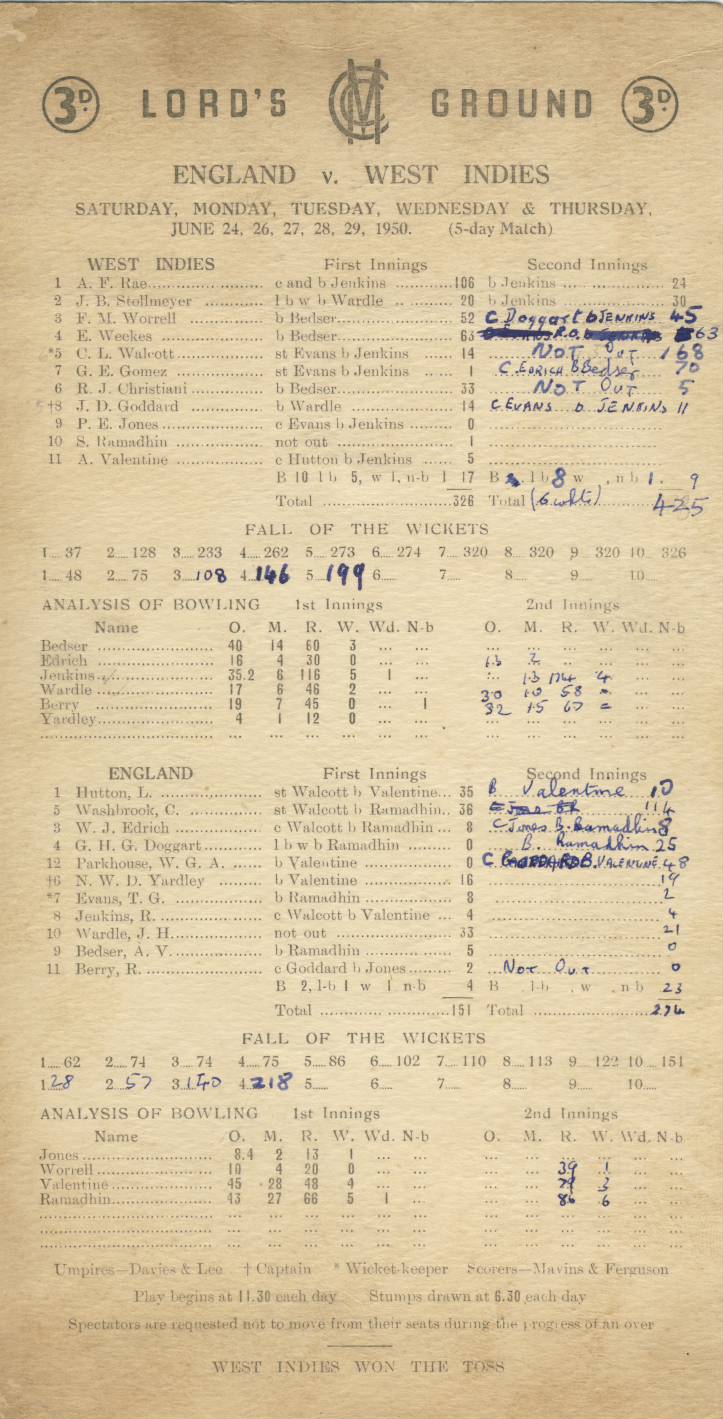 3D. LORD'S MCC GROUND 3D.
ENGLAND v. WEST INDIES
SATURDAY, MONDAY, TUESDAY, WEDNESDAY & THURSDAY,
JUNE 24, 26, 27, 28, 29, 1950. (5-day Match)
WEST INDIES First Innings Second Innings
1 A. F. Rae........................ c and b Jenkins ............106 b Jenkins ... .................. 24
2 J. B. Stollmeyer ............ l b w b Wardle .. .......... 20 b Jenkins ..................... 30
3 F. M. Worrell ............... b Bedser........................ 52 C Doggart b JENKINS 45
4 E. Weekes .................. b Bedser........................ 63 R.O. 63
*5 C. L. Walcott............... st Evans b Jenkins ...... 14 NOT OUT 168
7 G. E. Gomez ............... st Evans b Jenkins .. ... 1 C. EDRICH B Bedser 70
6 R. J. Christiani............ b Bedser........................ 33 NOT OUT 5
†8 J. D. Goddard ............ b Wardle ..................... 14 C EVANS b JENKINS 11
9 P. E. Jones.................. c Evans b Jenkins ......... 0
10 S. Ramadhin ............... not out ........................ 1
11 A. Valentine ............... c Hutton b Jenkins ...... 5
B 10 l b 5, w 1, n-b 1 17 B . l b 8 w , n b 1. 9
Total ........................326 Total (6 wkts) 425
FALL OF THE WICKETS
1.... 37 2.... 128 3.... 233 4.... 262 5.... 273 6.... 274 7.... 320 8.... 320 9.... 320 10... 326
1.... 48 2.... 75 3....108 4....146 5....199 6.... 7.... 8.... 9.... 10....
ANALYSIS OF BOWLING 1st Innings 2nd Innings
Name O. M. R. W. Wd. N-b O. M. R. W. Wd. N-b
Bedser ........................ 40 14 60 3 ... ... ... ... ... ... ... ...
Edrich ........................ 16 4 30 0 ... ... 13 2 ... ... ... ...
Jenkins........................ 35.2 6 116 5 1 ... ... 13 174 4 ... ...
Wardle ........................ 17 6 46 2 ... ... 30 10 58 = ... ...
Berry ........................ 19 7 45 0 ... 1 32 15 67 = ... ...
Yardley........................ 4 1 12 0 ... ... ... ... ... ... ... ...
ENGLAND First Innings Second Innings
1 Hutton, L. .................. st Walcott b Valentine... 35 B Valentine 10
5 Washbrook, C. ............ st Walcott b Ramadhin.. 36 114
3 W. J. Edrich ............... c Walcott b Ramadhin ... 8 C Jones B. Ramadhin 8
4 G. H. G. Doggart......... l b w b Ramadhin ......... 0 B. Ramadhin 25
12 Parkhouse, W. G. A. ...... b Valentine .................. 0 C GODDARD B. VALENTINE 48
†6 N. W. D. Yardley ......... b Valentine .................. 16 19
*7 Evans, T. G. ............... b Ramadhin .................. 8 2
8 Jenkins, R. .................. c Walcott b Valentine ... 4 4
10 Wardle, J. H................. not out ........................ 33 21
9 Bedser, A. V................. b Ramadhin .................. 5 0
11 Berry, R. ..................... c Goddard b Jones......... 2 Not Out 0
B 2, l-b 1 w 1 n-b 4 B . l-b . w . n b 23
Total ........................151 Total ........................274
FALL OF THE WICKETS
1.... 62 2.... 74 3.... 74 4.... 75 5.... 86 6.... 102 7.... 110 8.... 113 9.... 122 10.... 151
1..28 2...57 3..140 4..218 5.... 6.... 7.... 8.... 9.... 10....
ANALYSIS OF BOWLING 1st Innings 2nd Innings
Name O. M. R. W. Wd. N-b O. M. R. W. Wd. N-b
Jones ........................ 8.4 2 13 1 ... ... ... ... ... ... ... ...
Worrell........................ 10 4 20 0 ... ... ... ... 39 1 ... ...
Valentine ..................... 45 28 48 4 ... ... ... ... 79 3 ... ...
Ramadhin..................... 43 27 66 5 1 ... ... ... 86 6 ... ...
Umpires—Davies & Lee † Captain * Wicket-keeper Scorers—Mavins & Ferguson
Play begins at 11.30 each day Stumps drawn at 6.30 each day
Spectators are requested not to move from their seats during the progress of an over
WEST INDIES WON THE TOSS